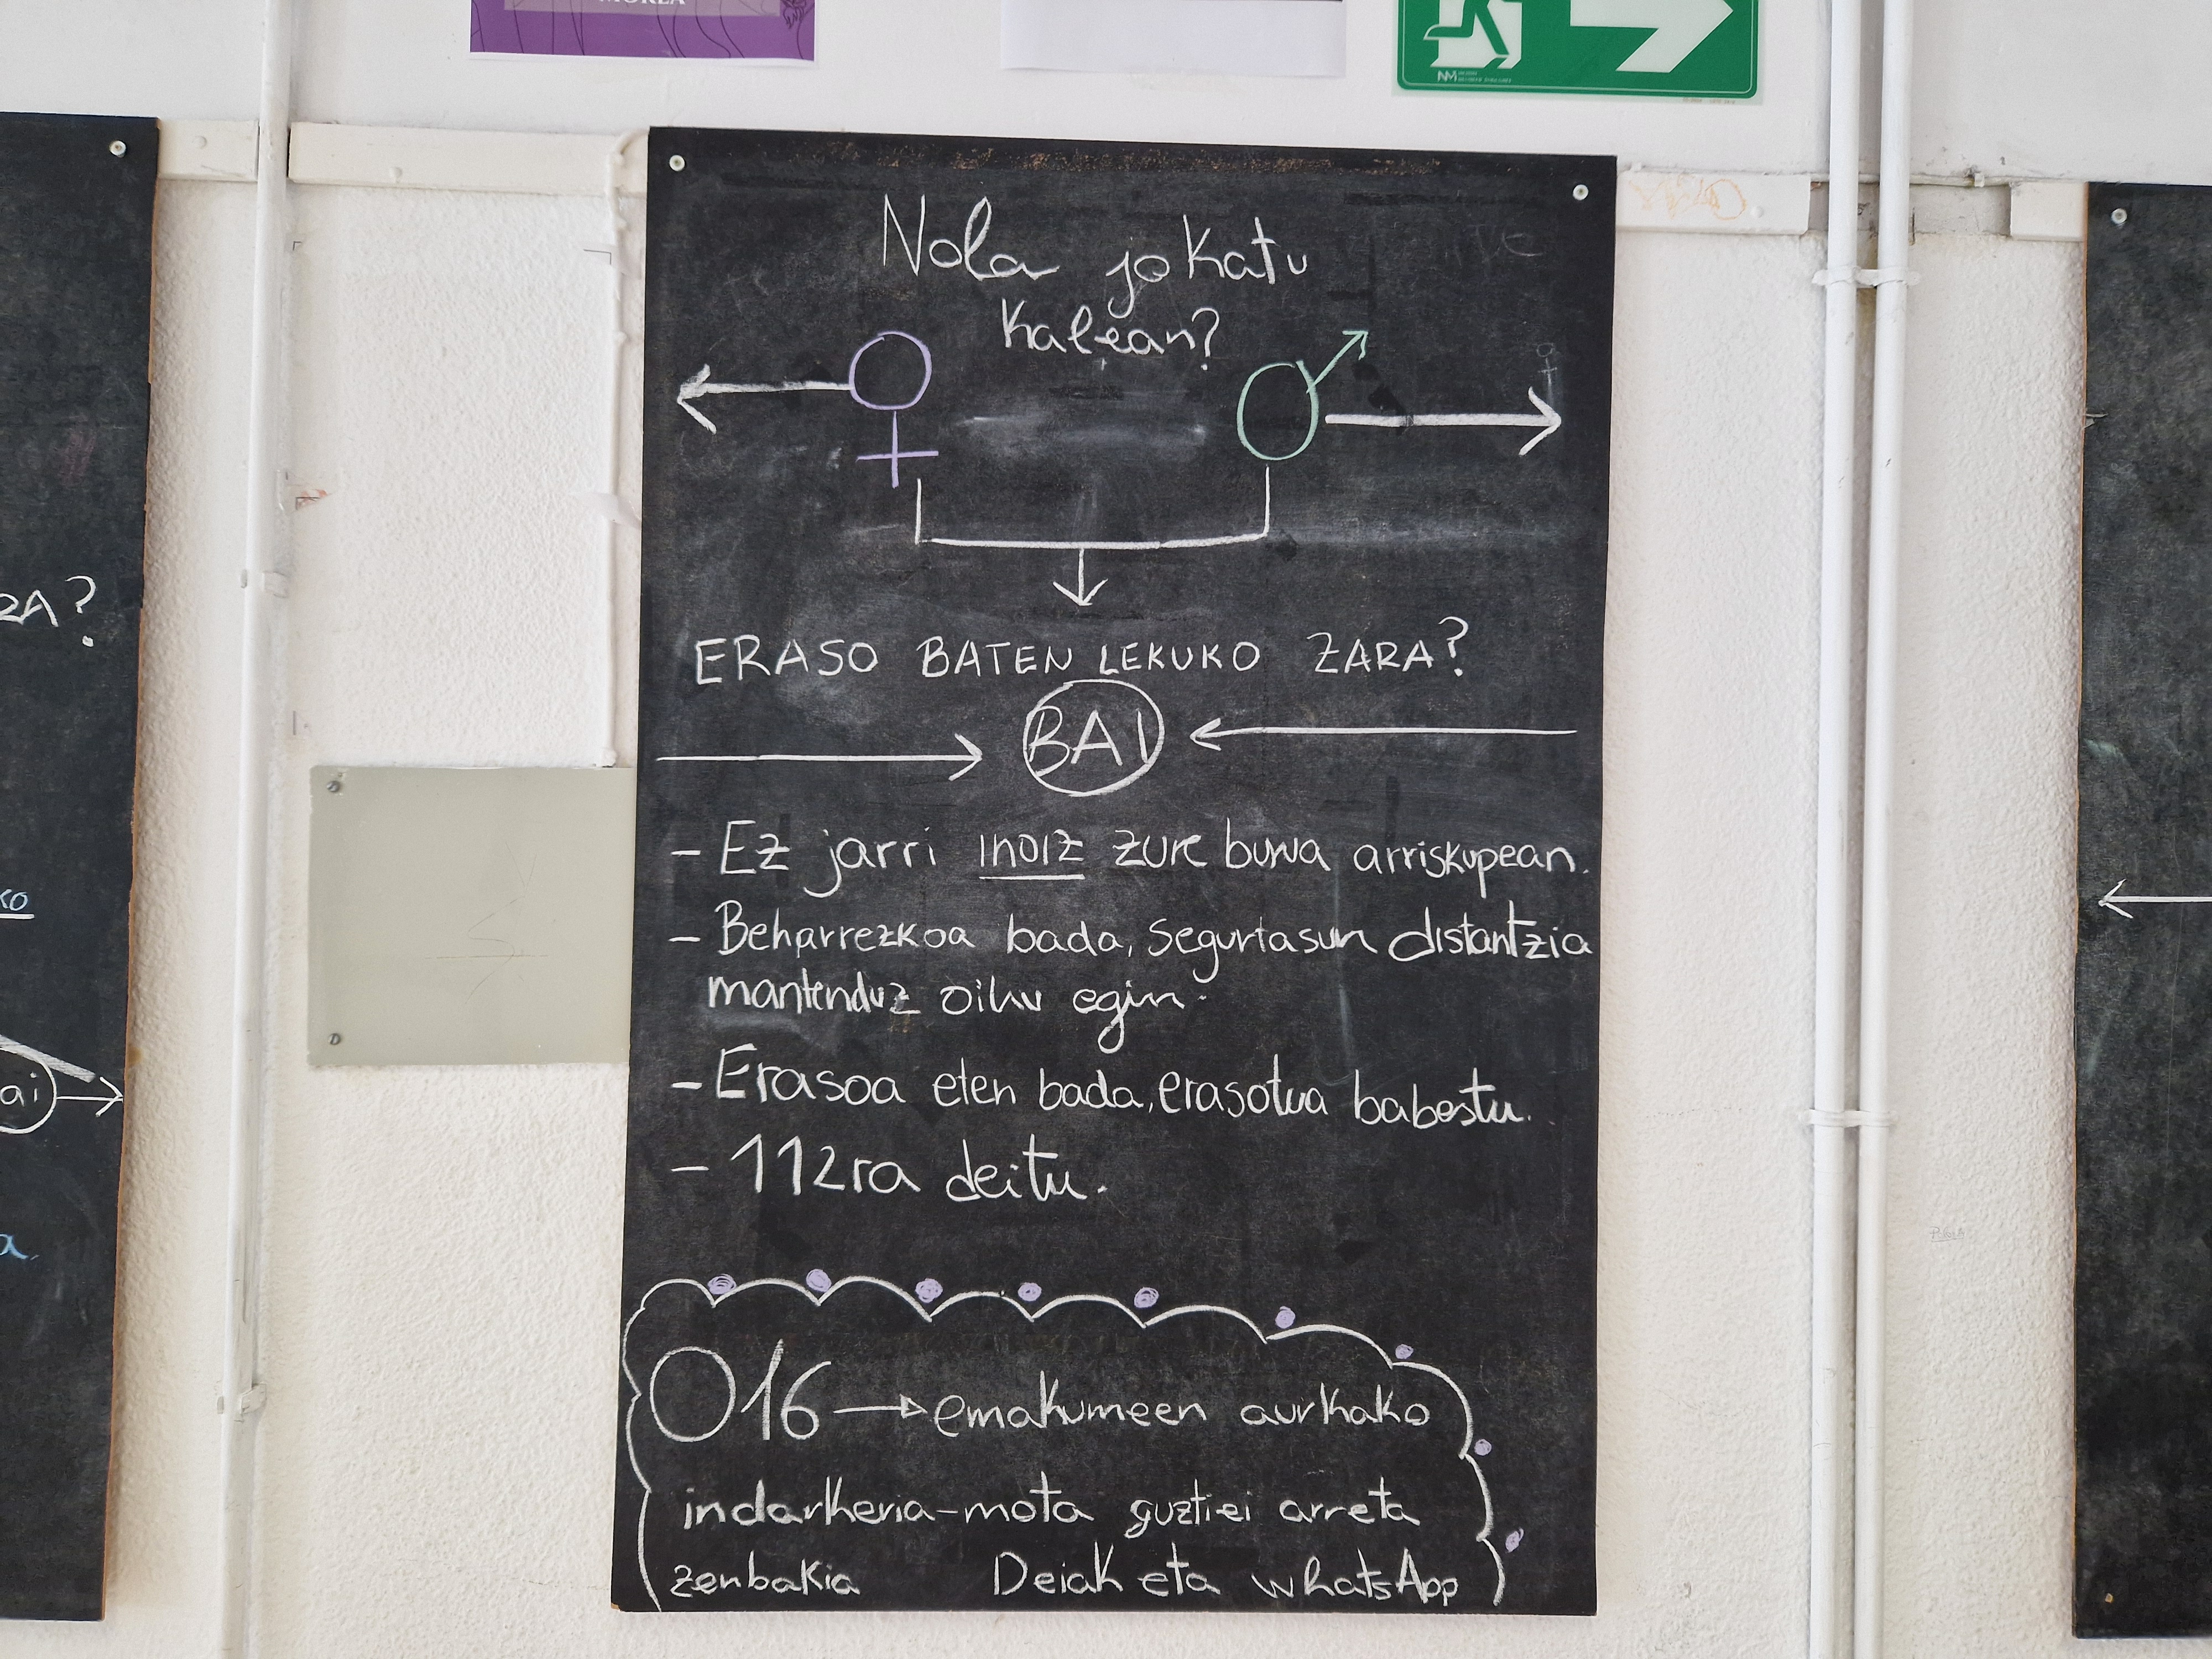 Nola jokatu
kalean?
ERASO BATEN LEKUKO ZARA?
BAI
- Ez jarri inoiz zure burua arriskupean.
- Beharrezkoa bada, segurtasun distantzia
mantenduz oihu egin.
- Erasoa eten bada, erasotua babestu.
- 112ra deitu.
016 → emakumeen aurkako
indarkeria-mota guztiei arreta
zenbakia Deiak eta whatsApp
RA?
KO
ai
a.